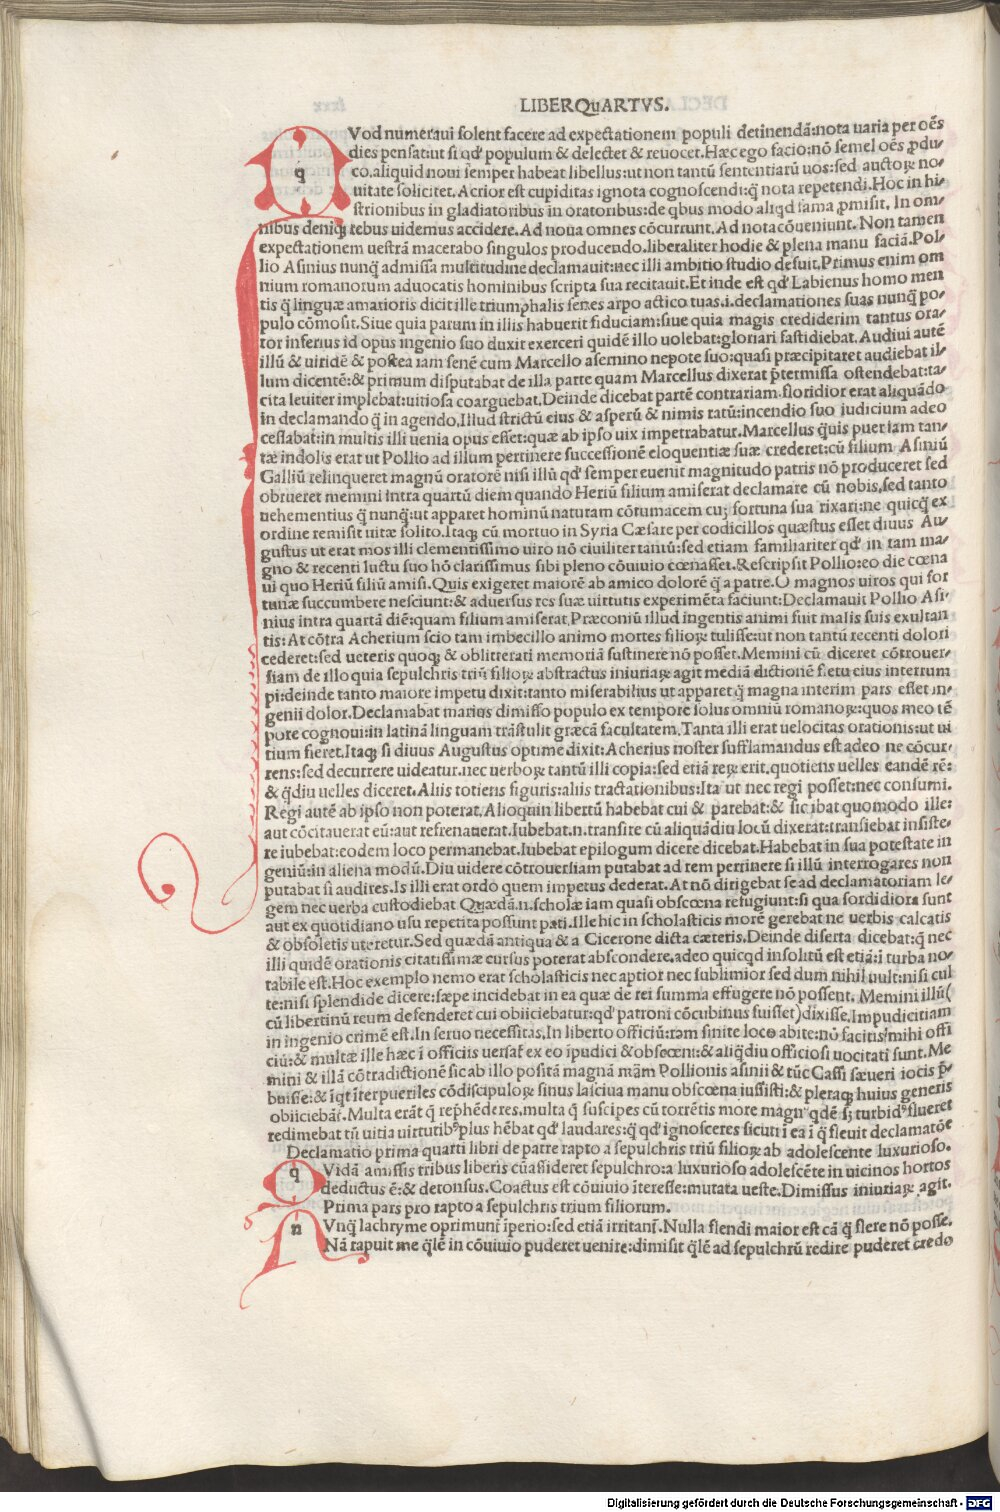 LIBER QuARTVS.
q Vod numeraui solent facere ad expectationem populi detinendā:nota uaria per oēs
dies pensat:ut si qd' populum & delectet & reuocet.Hæc ego facio:nō semel oēs ꝓdu-
co.aliquid noui semper habeat libellus:ut non tantū sententiarū uos:sed auctoꝝ no-
uitate solicitet.Acrior est cupiditas ignota cognoscendi:q̄ nota repetendi.Hoc in hi-
strionibus in gladiatoribus in oratoribus:de qbus modo aliqd fama ꝓmisit. In om-
nibus deniq; rebus uidemus accidere.Ad noua omnes cōcurrunt.Ad nota cōueniunt.Non tamen
expectationem uestrā macerabo singulos producendo.liberaliter hodie & plena manu faciā.Pol-
lio Asinius nunq̄ admissa multitudine declamauit:nec illi ambitio studio defuit.Primus enim om
nium romanorum aduocatis hominibus scripta sua recitauit.Et inde est qd' Labienus homo men
tis q̄ linguæ amarioris dicit ille triumphalis senes arpo actico tuas.i.declamationes suas nunq̄ po-
pulo cōmosit.Siue quia parum in illis habuerit fiduciam:siue quia magis crediderim tantus ora-
tor inferius id opus ingenio suo duxit exerceri quidē illo uolebat:gloriari fastidiebat.Audiui autē
illū & uiridē & postea iam senē cum Marcello asernino nepote suo:quasi præcipitaret audiebat il-
lum dicentē:& primum disputabat de illa parte quam Marcellus dixerat p̄termissa ostendebat:ta-
cita leuiter implebat:uitiosa coarguebat.Deinde dicebat partē contrariam.floridior erat aliquādo
in declamando q̄ in agendo.Illud strictū eius & asperū & nimis ratū:incendio suo iudicium adeo
cessabat:in multis illi uenia opus esset:quæ ab ipso uix impetrabatur.Marcellus q̄uis puer iam tan-
tæ indolis erat ut Pollio ad illum pertinere successionē eloquentiæ suæ crederet:cū filium Asiniū
Galliū relinqueret magnū oratorē nisi illū qd' semper euenit magnitudo patris nō produceret sed
obrueret memini intra quartū diem quando Heriū filium amiserat declamare cū nobis.sed tanto
uehementius q̄ nunq̄:ut apparet hominū naturam cōtumacem cuꝫ fortuna sua rixari:ne quicq̄ ex
ordine remisit uitæ solito.Itaq; cū mortuo in Syria Cæsare per codicillos quæstus esset diuus Au-
gustus ut erat mos illi clementissimo uiro nō ciuiliter tantū:sed etiam familiariter qd' in tam ma-
gno & recenti luctu suo hō clarissimus sibi pleno cōuiuio cœnasset.Rescripsit Pollio:eo die cœna
ui quo Heriū filiū amisi.Quis exigeret maiorē ab amico dolorē q̄ a patre.O magnos uiros qui for
tunæ succumbere nesciunt:& aduersus res suæ uirtutis experimēta faciunt:Declamauit Pollio Asi-
nius intra quartā diē:quam filium amiserat.Præconiū illud ingentis animi fuit malis suis exultan
tis:At cōtra Acherium scio tam imbecillo animo mortes filioꝝ tulisse:ut non tantū recenti dolori
cederet:sed ueteris quoq; & oblitterati memoriā sustinere nō posset.Memini cū diceret cōtrouer-
siam de illo quia sepulchris triū filioꝝ abstractus iniuriaꝝ agit mediā dictionē fletu eius interrum
pi:deinde tanto maiore impetu dixit:tanto miserabilius ut apparet q̄ magna interim pars esset in-
genii dolor.Declamabat marius dimisso populo ex tempore solus omniū romanoꝝ:quos meo tē
pore cognoui:in latinā linguam trāstulit græcā facultatem.Tanta illi erat uelocitas orationis:ut ui
tium fieret.Itaq; si diuus Augustus optime dixit:Acherius noster sufflamandus est adeo ne cōcur-
rens:sed decurrere uideatur.nec uerboꝝ tantū illi copia:sed etiā reꝝ erit.quotiens uelles eandē rē:
& q̄diu uelles diceret.Aliis totiens figuris:aliis tractationibus:Ita ut nec regi posset:nec consumi.
Regi autē ab ipso non poterat.Alioquin libertū habebat cui & parebat:& sic ibat quomodo ille:
aut cōcitauerat eū:aut refrenauerat.Iubebat.n.transire cū aliquādiu locū dixerat:transiebat insiste-
re iubebat:eodem loco permanebat.Iubebat epilogum dicere dicebat.Habebat in sua potestate in
geniū:in aliena modū.Diu uidere cōtrouersiam putabat ad rem pertinere si illū interrogares non
putabat si audires.Is illi erat ordo quem impetus dederat.At nō dirigebat se ad declamatoriam le-
gem nec uerba custodiebat.Quædā.n.scholæ iam quasi obscœna refugiunt:si qua sordidiora sunt
aut ex quotidiano usu repetita possunt pati.Ille hic in scholasticis morē gerebat ne uerbis calcatis
& obsoletis uteretur.Sed quædā antiqua & a Cicerone dicta cæteris.Deinde diserta dicebat:q̄ nec
illi quidē orationis citatissimæ cursus poterat abscondere.adeo quicqd insolitū est etiā:i turba no-
tabile est.Hoc exemplo nemo erat scholasticis nec aptior nec sublimior sed dum nihil uult:nisi cul
te:nisi splendide dicere:sæpe incidebat in ea quæ de rei summa effugere nō possent.Memini illū(
cū libertinū reum defenderet cui obiiciebatur:qd' patroni cōcubinus fuisset)dixisse.Impudicitiam
in ingenio crimē est.In seruo necessitas.In liberto officiū:rem sinite loco abite:nō facitis:mihi offi
ciū:& multæ ille hæc ī officiis uersat̄ ex eo īpudici & obscœni:& aliq̄diu officiosi uocitati sunt.Me
mini & illā cōtradictionē sic ab illo positā magnā mām Pollionis asinii & tūc Cassi sæueri iocis p̄-
buisse:& īqt īter pueriles cōdiscipuloꝝ sinus lasciua manu obscœna iussisti:& pleraq; huius generis
obiiciebāt̄.Multa erāt q̄ rep̄hēderes.multa q̄ suscipes cū torrētis more magn' qdē sꝫ turbid' flueret
redimebat tn̄ uitia uirtutib' plus hēbat qd' laudares:q̄ qd' ignosceres sicuti ī ea i q̄ fleuit declamatōe
Declamatio prima quarti libri de patre rapto a sepulchris triū filioꝝ ab adolescente luxurioso.
q Vidā amissis tribus liberis cū assideret sepulchro:a luxurioso adolescēte in uicinos hortos
deductus ē:& detonsus.Coactus est cōuiuio īteresse:mutata ueste.Dimissus iniuriaꝝ agit.
Prima pars pro rapto a sepulchris trium filiorum.
n Vnq̄ lachryme oprimunt̄ īperio:sed etiā irritant̄.Nulla flendi maior est cā q̄ flere nō posse.
Nā rapuit me q̄lē in cōuiuio puderet uenire:dimisit q̄lē ad sepulchrū redire puderet credo
Digitalisierung gefördert durch die Deutsche Forschungsgemeinschaft - DFG